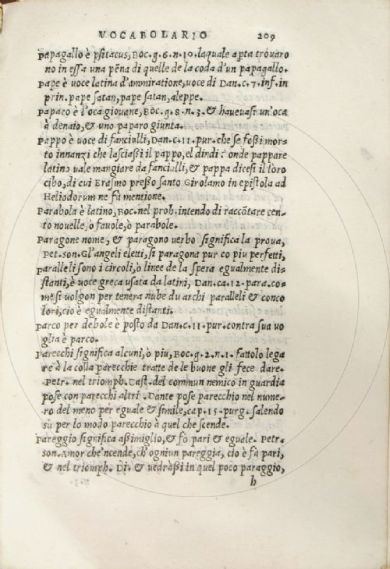 VOCABOLARIO 209
Papagallo è psitacus, BOC. g. 6. n. 10. laquale apta trouaro
no in essa una pēna di quelle de la coda d'un papagallo.
Pape è uoce latina d'ammiratione, uoce di Dan. c. 7. inf. in
prin. pape satan, pape satan, aleppe.
Papaco è l'oca giouane, BOC. g. 8. n. 3. & haueuasi un'oca
à denaio, & uno paparo giunta.
Pappo è uoce di fanciulli, Dan. c. 11. pur. che se fossi mor⸗
to innanzi che lasciassi il pappo, el dindi: onde pappare
latino uale mangiare da fanciulli, & pappa dicesi il loro
cibo, di cui Erasmo presso santo Girolamo in epistola ad
Heliodorum ne fa mentione.
Parabola è latino, BOC. nel prob. intendo di raccōtare cen⸗
to nouelle, o fauole, ò parabole.
Paragone nome, & paragono uerbo significa la proua,
Pet. son. Gl'angeli eletti, si paragona pur co piu perfetti,
paralleli sono i circoli, ò linee de la spera egualmente di⸗
stanti, è uoce greca usata da latini, Dan. ca. 12. para. co⸗
me si uolgon per tenera nube du archi paralleli & conco
lori, cio è egualmente distanti.
Parco per debole è posto da Dan. c. 11. pur. contra sua uo
glia è parco.
Parecchi significa alcuni, ò piu, BOC. g. 2. n. 1. fattolo lega
re à la colla parecchie tratte de le buone gli fece dare.
Petr. nel triomph. Cast. del commun nemico in guardia
pose con parecchi altri. Dante pose parecchio nel nume⸗
ro del meno per eguale & simile, ca. 15. purg. salendo
sù per lo modo parecchio à quel che scende.
Pareggio significa assimiglio, & fò pari & eguale. Petr.
son. Amor che'ncende, ch'ogniun pareggia, cio è fà pari,
& nel triomph. Di. & uedrassi in quel poco paraggio,
h